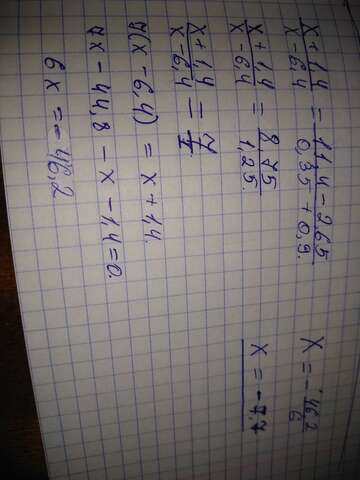 x+1,4/x-6,4 = 11,4-2,65/0,35+0,9.
x+1,4/x-6,4 = 8,75/1,25.
x+1,4/x-6,4 = 7/1.
7(x-6,4) = x+1,4.
7x-44,8-x-1,4=0.
6x=-46,2
x=-46,2/6
x=-7,7